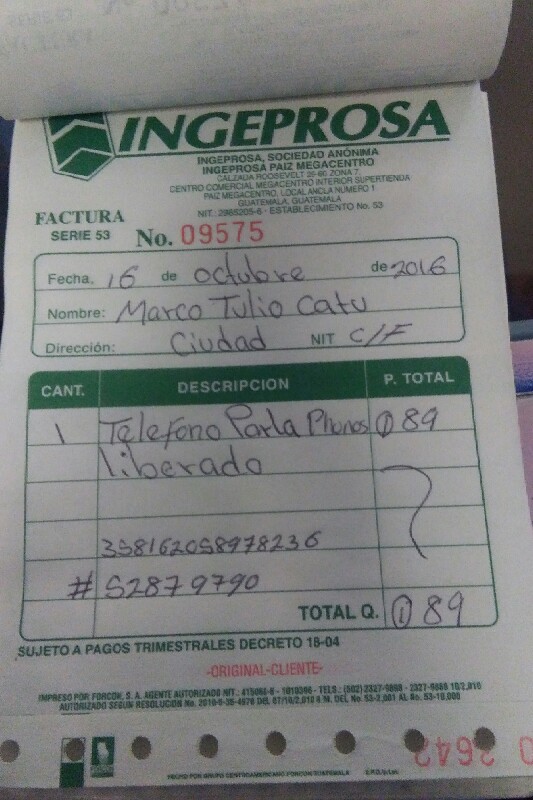 INGEPROSA
INGEPROSA, SOCIEDAD ANÓNIMA
INGEPROSA PAIZ MEGACENTRO
CALZADA ROOSEVELT 25-60 ZONA 7,
CENTRO COMERCIAL MEGACENTRO INTERIOR SUPERTIENDA
PAIZ MEGACENTRO, LOCAL ANCLA NUMERO 1
GUATEMALA, GUATEMALA
NIT.: 2965205-6 - ESTABLECIMIENTO No. 53
FACTURA
SERIE 53 No. 09575
Fecha, 16 de octubre de 2016
Nombre: Marco Tulio Catu
Dirección: Ciudad NIT C/F
CANT. DESCRIPCION P. TOTAL
1 Telefono Parla Phones Q 89
liberado
358162058978236
# 52879790
TOTAL Q. Q 89
SUJETO A PAGOS TRIMESTRALES DECRETO 18-04
-ORIGINAL-CLIENTE-
IMPRESO POR FORCON, S. A. AGENTE AUTORIZADO NIT.:
AUTORIZADO SEGUN RESOLUCION No.